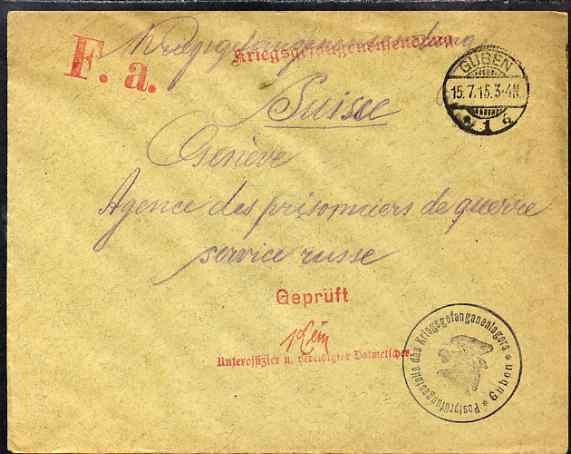 F. a.
Kriegsgefangenensendung
Kriegsgefangenensendung
GUBEN
15.7.15.3-4N.
* 1 a
Suisse
Genève
Agence des prisonniers de guerre
service russe
Geprüft
Unteroffizier u. vereidigter Dolmetscher.
Postprüfungsstelle des Kriegsgefangenenlagers * Guben *